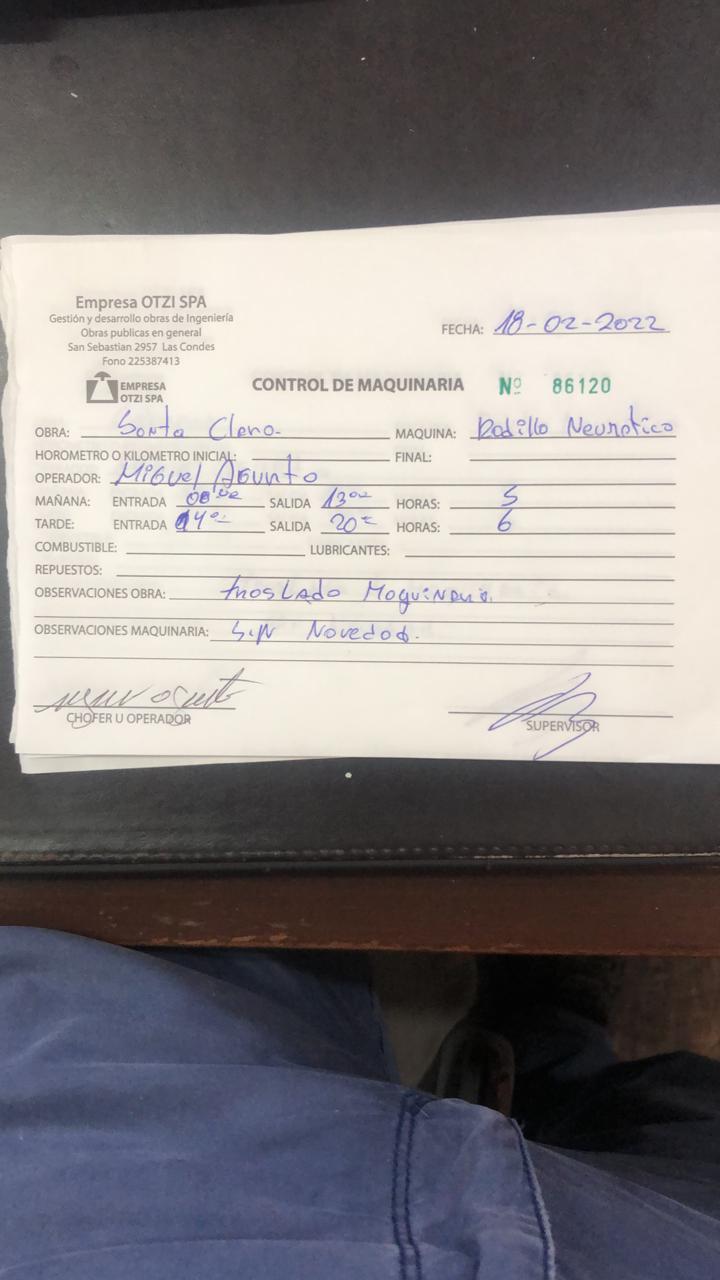 Empresa OTZI SPA
Gestión y desarrollo obras de Ingeniería
Obras publicas en general
San Sebastian 2957 Las Condes
Fono 225387413
FECHA: 18-02-2022
EMPRESA
OTZI SPA
CONTROL DE MAQUINARIA Nº 86120
OBRA: Santa Clara. MAQUINA: Rodillo Neumatico
HOROMETRO O KILOMETRO INICIAL: FINAL:
OPERADOR: Miguel Asunto
MAÑANA: ENTRADA 08:00 SALIDA 13 00 HORAS: 5
TARDE: ENTRADA 14 00 SALIDA 20 HORAS: 6
COMBUSTIBLE: LUBRICANTES:
REPUESTOS:
OBSERVACIONES OBRA: traslado Maquinaria.
OBSERVACIONES MAQUINARIA: Sin Novedad.
CHOFER U OPERADOR SUPERVISOR